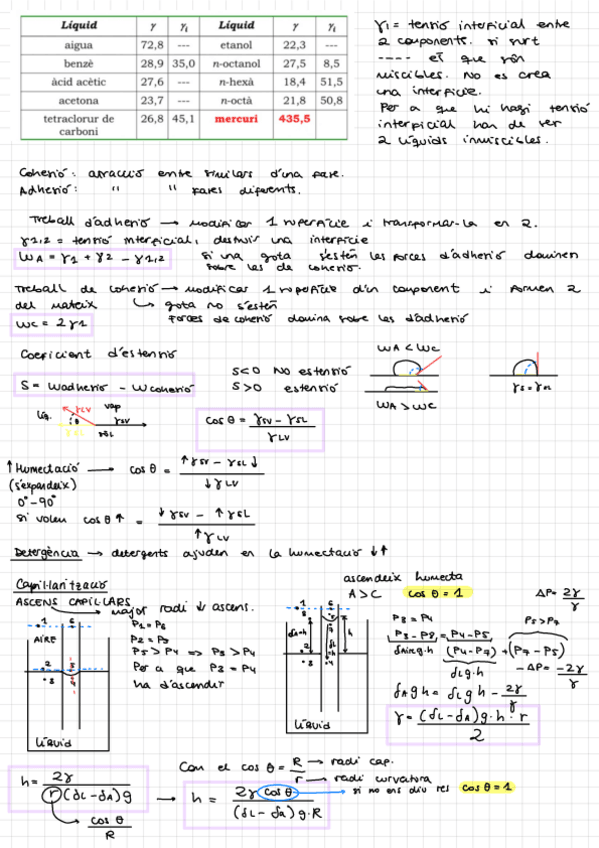 Líquid γ γi Líquid γ γi
aigua 72,8 --- etanol 22,3 ---
benzè 28,9 35,0 n-octanol 27,5 8,5
àcid acètic 27,6 --- n-hexà 18,4 51,5
acetona 23,7 --- n-octà 21,8 50,8
tetraclorur de carboni 26,8 45,1 mercuri 435,5
γi = tensió interficial entre
2 components. si surt
---- és que són
miscibles. No es crea
una interfície.
Per a que hi hagi tensió
interficial han de ser
2 líquids immiscibles.
Cohesió: atracció entre similars d'una fase.
Adhesió: " " fases diferents.
Treball d'adhesió → modificar 1 superfície i transformar-la en 2.
γ1,2 = tensió interficial, destruir una interfície
WA = γ1 + γ2 - γ1,2
si una gota s'estén les forces d'adhesió dominen
sobre les de cohesió.
Treball de cohesió → modificar 1 superfície d'un component i formen 2
del mateix ↳ gota no s'estén
Forces de cohesió domina sobre les d'adhesió
WC = 2γ1
Coeficient d'estensió
S = Wadhesió - Wcohesió
S<0 NO estensió
S>0 estensió
WA < WC
WA > WC
γS = γSL
líq. γLV vap
θ γSV
γSL sòl
cos θ = γSV - γSL / γLV
↑ Humectació → cos θ = ↑γSV - γSL↓ / ↓γLV
(s'expandeix)
0°-90°
si volen cos θ↑ = ↓γSV - ↑γSL / ↑γLV
Detergència → detergents ajuden en la humectació ↓↑
Capil·larització
ASCENS CAPIL·LARS → major radi ↓ ascens.
AIRE
LÍQUID
P1 = P6
P2 = P3
P5 > P4 => P3 > P4
Per a que P3 = P4
ha d'ascendir
ascendeix humecta
A>C cos θ = 1
LÍQUID
ΔP = 2γ / r
P3 = P4 P5 > P7
P3 - P8 = P4 - P5
δaire g.h (P4-P7) + (P7-P5)
δL g.h -ΔP = -2γ / r
δA g h = δL g h - 2γ / r
γ = (δL - δA) g. h. r / 2
Con el cos θ = R → radi cap.
r → radi curvatura
si no ens diu res cos θ = 1
h = 2γ / r (δL - δA) g → h = 2γ cos θ / (δL - δA) g.R
cos θ / R